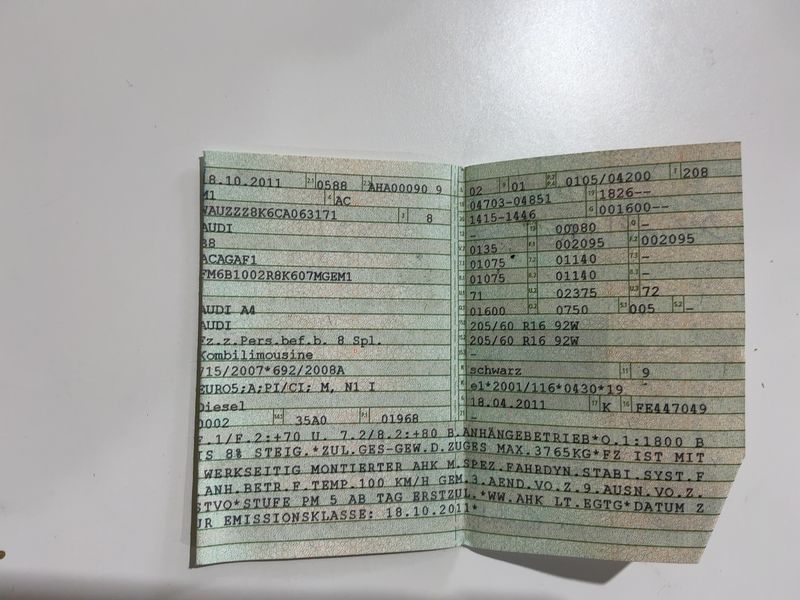 8.10.2011 2.1 0588 2.2 AHA00090 9
M1 4 AC
WAUZZZ8K6CA063171 3 8
AUDI
B8
ACAGAF1
FM6B1002R8K607MGEM1
AUDI A4
AUDI
Fz.z.Pers.bef.b. 8 Spl.
Kombilimousine
715/2007*692/2008A
EURO5;A;PI/CI; M, N1 I
Diesel
0002 14.1 35A0 P.1 01968
02 9 01 0105/04200 T 208
04703-04851 19 1826--
1415-1446 G 001600--
- 00080 -
0135 002095 F.2 002095
01075 01140 -
01075 01140 -
71 U.2 02375 U.3 72
01600 O.2 0750 S.1 005 S.2 -
205/60 R16 92W
205/60 R16 92W
-
schwarz 11 9
e1*2001/116*0430*19
18.04.2011 17 K 16 FE447049
-
F.1/F.2:+70 U. 7.2/8.2:+80 B.ANHÄNGEBETRIEB*O.1:1800 B
IS 8% STEIG.*ZUL.GES-GEW.D.ZUGES MAX.3765KG*FZ IST MIT
WERKSEITIG MONTIERTER AHK M.SPEZ.FAHRDYN.STABI.SYST.F
.ANH.BETR.F.TEMP.100 KM/H GEM.3.AEND.VO.Z.9.AUSN.VO.Z.
STVO*STUFE PM 5 AB TAG ERSTZUL.*WW.AHK LT.EGTG*DATUM Z
UR EMISSIONSKLASSE: 18.10.2011*